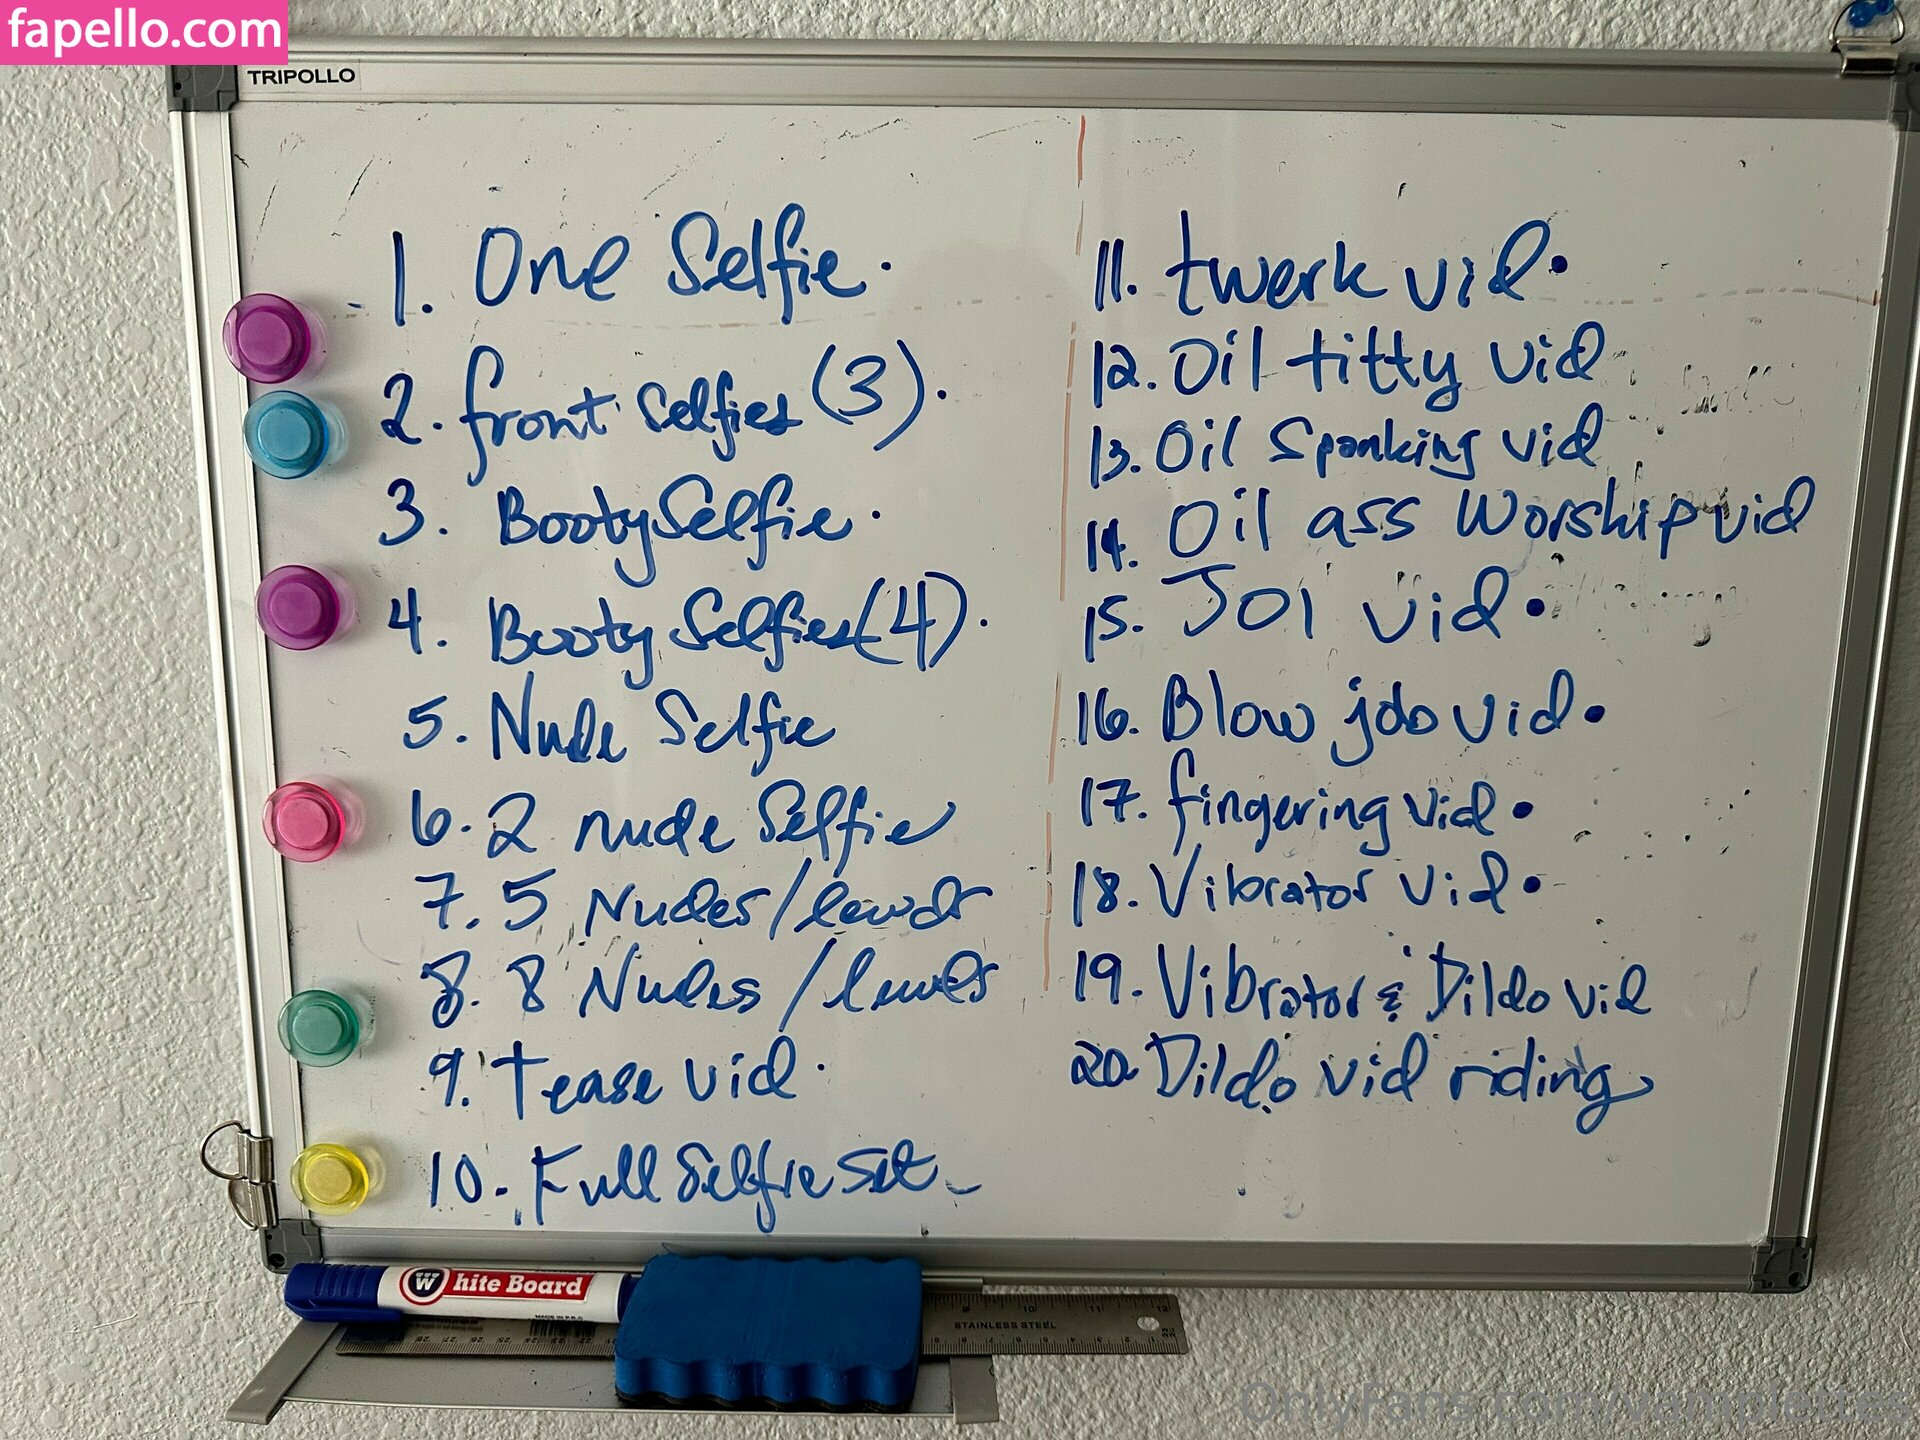 fapello.com
TRIPOLLO
1. One Selfie.
2. front selfies (3).
3. Booty Selfie.
4. Booty Selfies (4).
5. Nude Selfie
6. 2 nude Selfie
7. 5 Nudes/lewds
8. 8 Nudes/lewds
9. Tease vid.
10. Full Selfie set
11. twerk vid.
12. Oil titty vid
13. Oil Spanking vid
14. Oil ass Worship vid
15. JOI vid.
16. Blow job vid.
17. fingering vid.
18. Vibrator vid.
19. Vibrator & Dildo vid
20. Dildo vid riding
White Board
MADE IN P.R.C
STAINLESS STEEL
OnlyFans.com/vamplettes